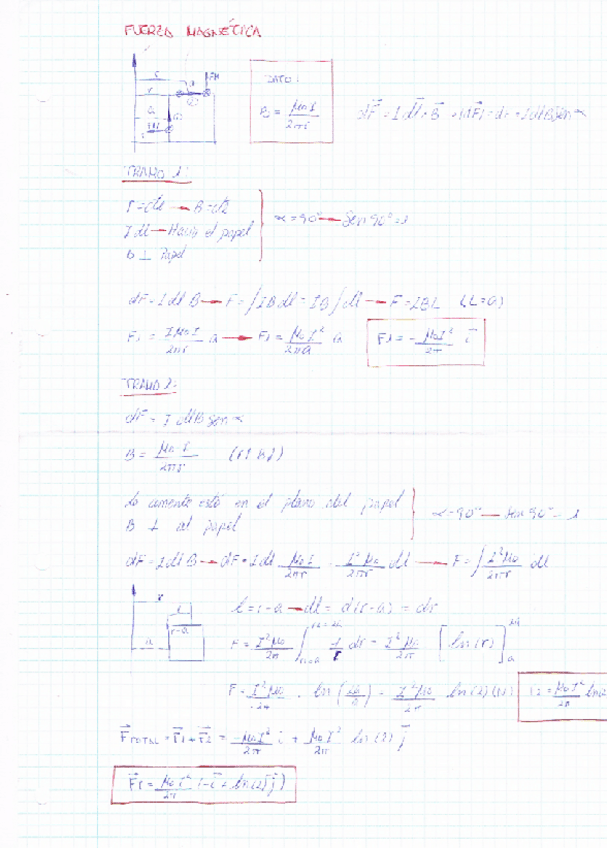 FUERZA MAGNÉTICA
DATO:
B = μ₀I / 2πr
TRAMO 1:
r = cte → B = cte
I dl → Hacia el papel
B ⊥ Papel
α = 90° → Sen 90° = 1
dF = I dl B → F = ∫ I B dl = I B ∫ dl → F = I B L (L = a)
F₁ = I μ₀ I / 2πr a → F₁ = μ₀ I² / 2πa a
F₁ = - μ₀ I² / 2π i
TRAMO 2:
dF = I dl B sen α
B = μ₀ I / 2πr
La corriente está en el plano del papel
B ⊥ al papel
α = 90° → Sen 90° = 1
dF = I dl B → dF = I dl μ₀ I / 2πr = I² μ₀ / 2πr dl → F = ∫ I² μ₀ / 2πr dl
l = r - a → dl = d(r - a) = dr
F = I² μ₀ / 2π ∫ 1/r dr = I² μ₀ / 2π [ln(r)]
F = I² μ₀ / 2π · ln(2a/a) = I² μ₀ / 2π ln(2) (N)
F TOTAL = F₁ + F₂ = -μ₀ I² / 2π i + μ₀ I² / 2π ln(2) j
F_T = μ₀ I² / 2π (-i + ln(2) j)